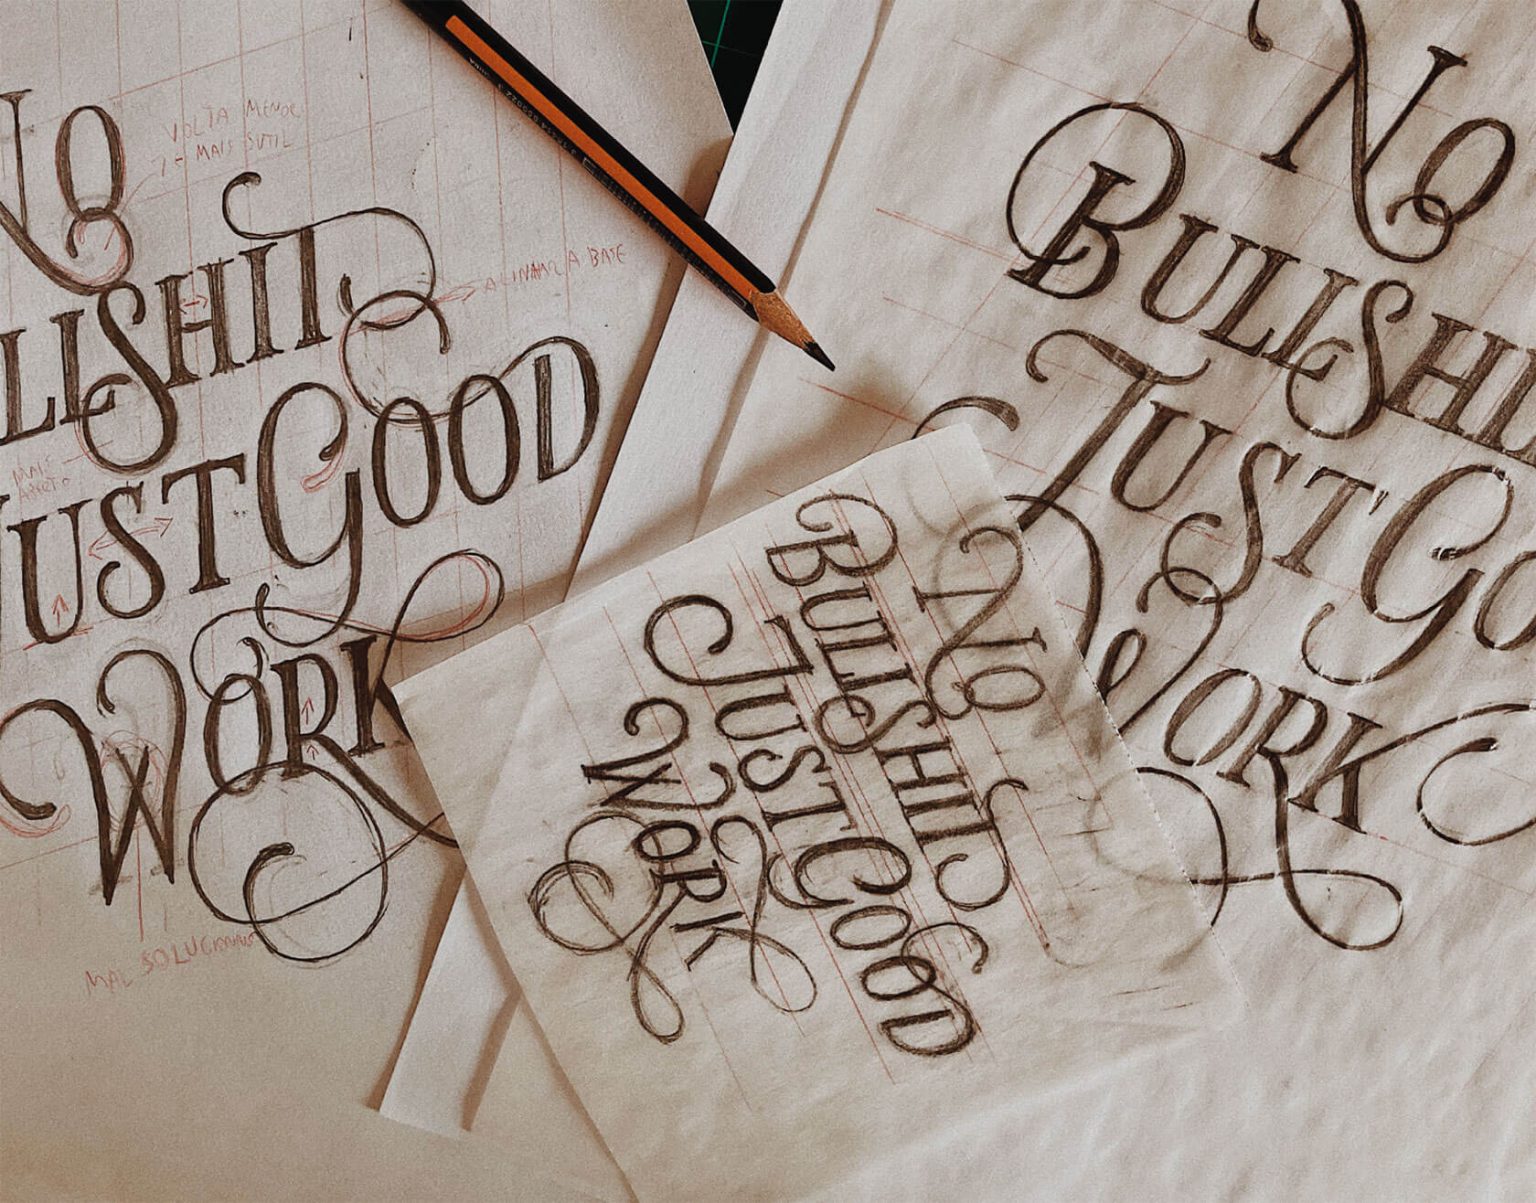 No
LLSHIT
JUST GOOD
WORK
VOLTA MENOR
E MAIS SUTIL
ALINHAR A BASE
MAIS
MAL SOLUCIONADO
No
BULLSHIT
JUST GOOD
WORK
No
BULLSHI
JUST GO
WORK